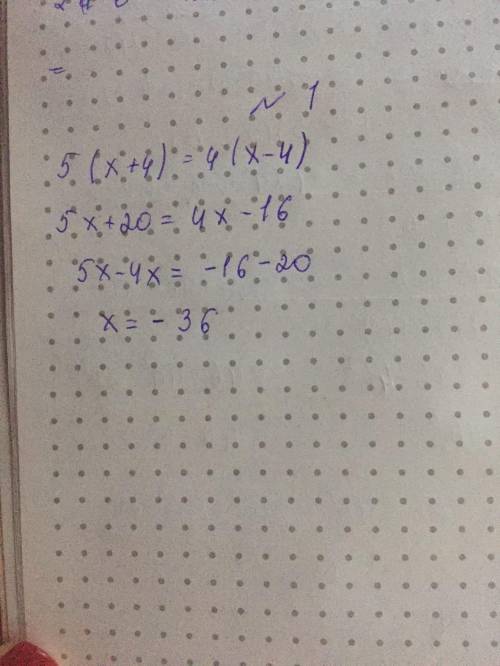 =
~ 1
5 (x+4) = 4 (x-4)
5x+20 = 4x-16
5x-4x = -16-20
x = - 36